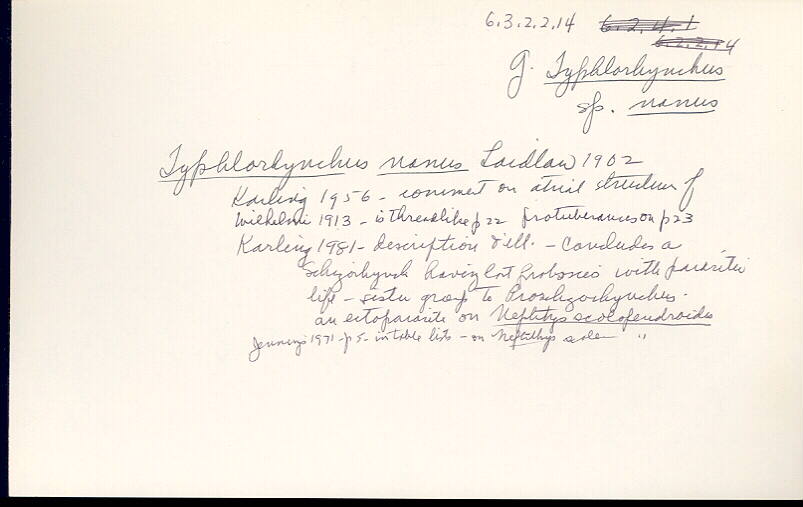 6.3.2.2.14 6.2.4.1
6.2.2.14
g. Typhlorhynchus
sp. nanus
Typhlorhynchus nanus Laidlaw 1902
Karling 1956 - comment on atrial structure of
Wilhelmi 1913 - is threadlike p 22 protuberances on p 23
Karling 1981 - description & ill. - concludes a
Schizorhynch having lost proboscis with parasitic
life - sister group to Proschizorhynchus.
an ectoparasite on Nephtys scolopendroides
Jennings 1971 - p 5 - in table lists - on Nephthys "